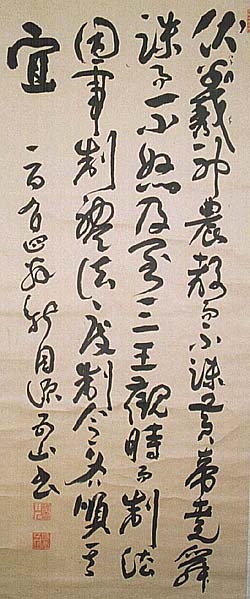 伏羲神農教而不誅黄帝堯舜
誅而不怒及至三王觀時而制法
因事制禮法度制令各順其
宜
一百 山書